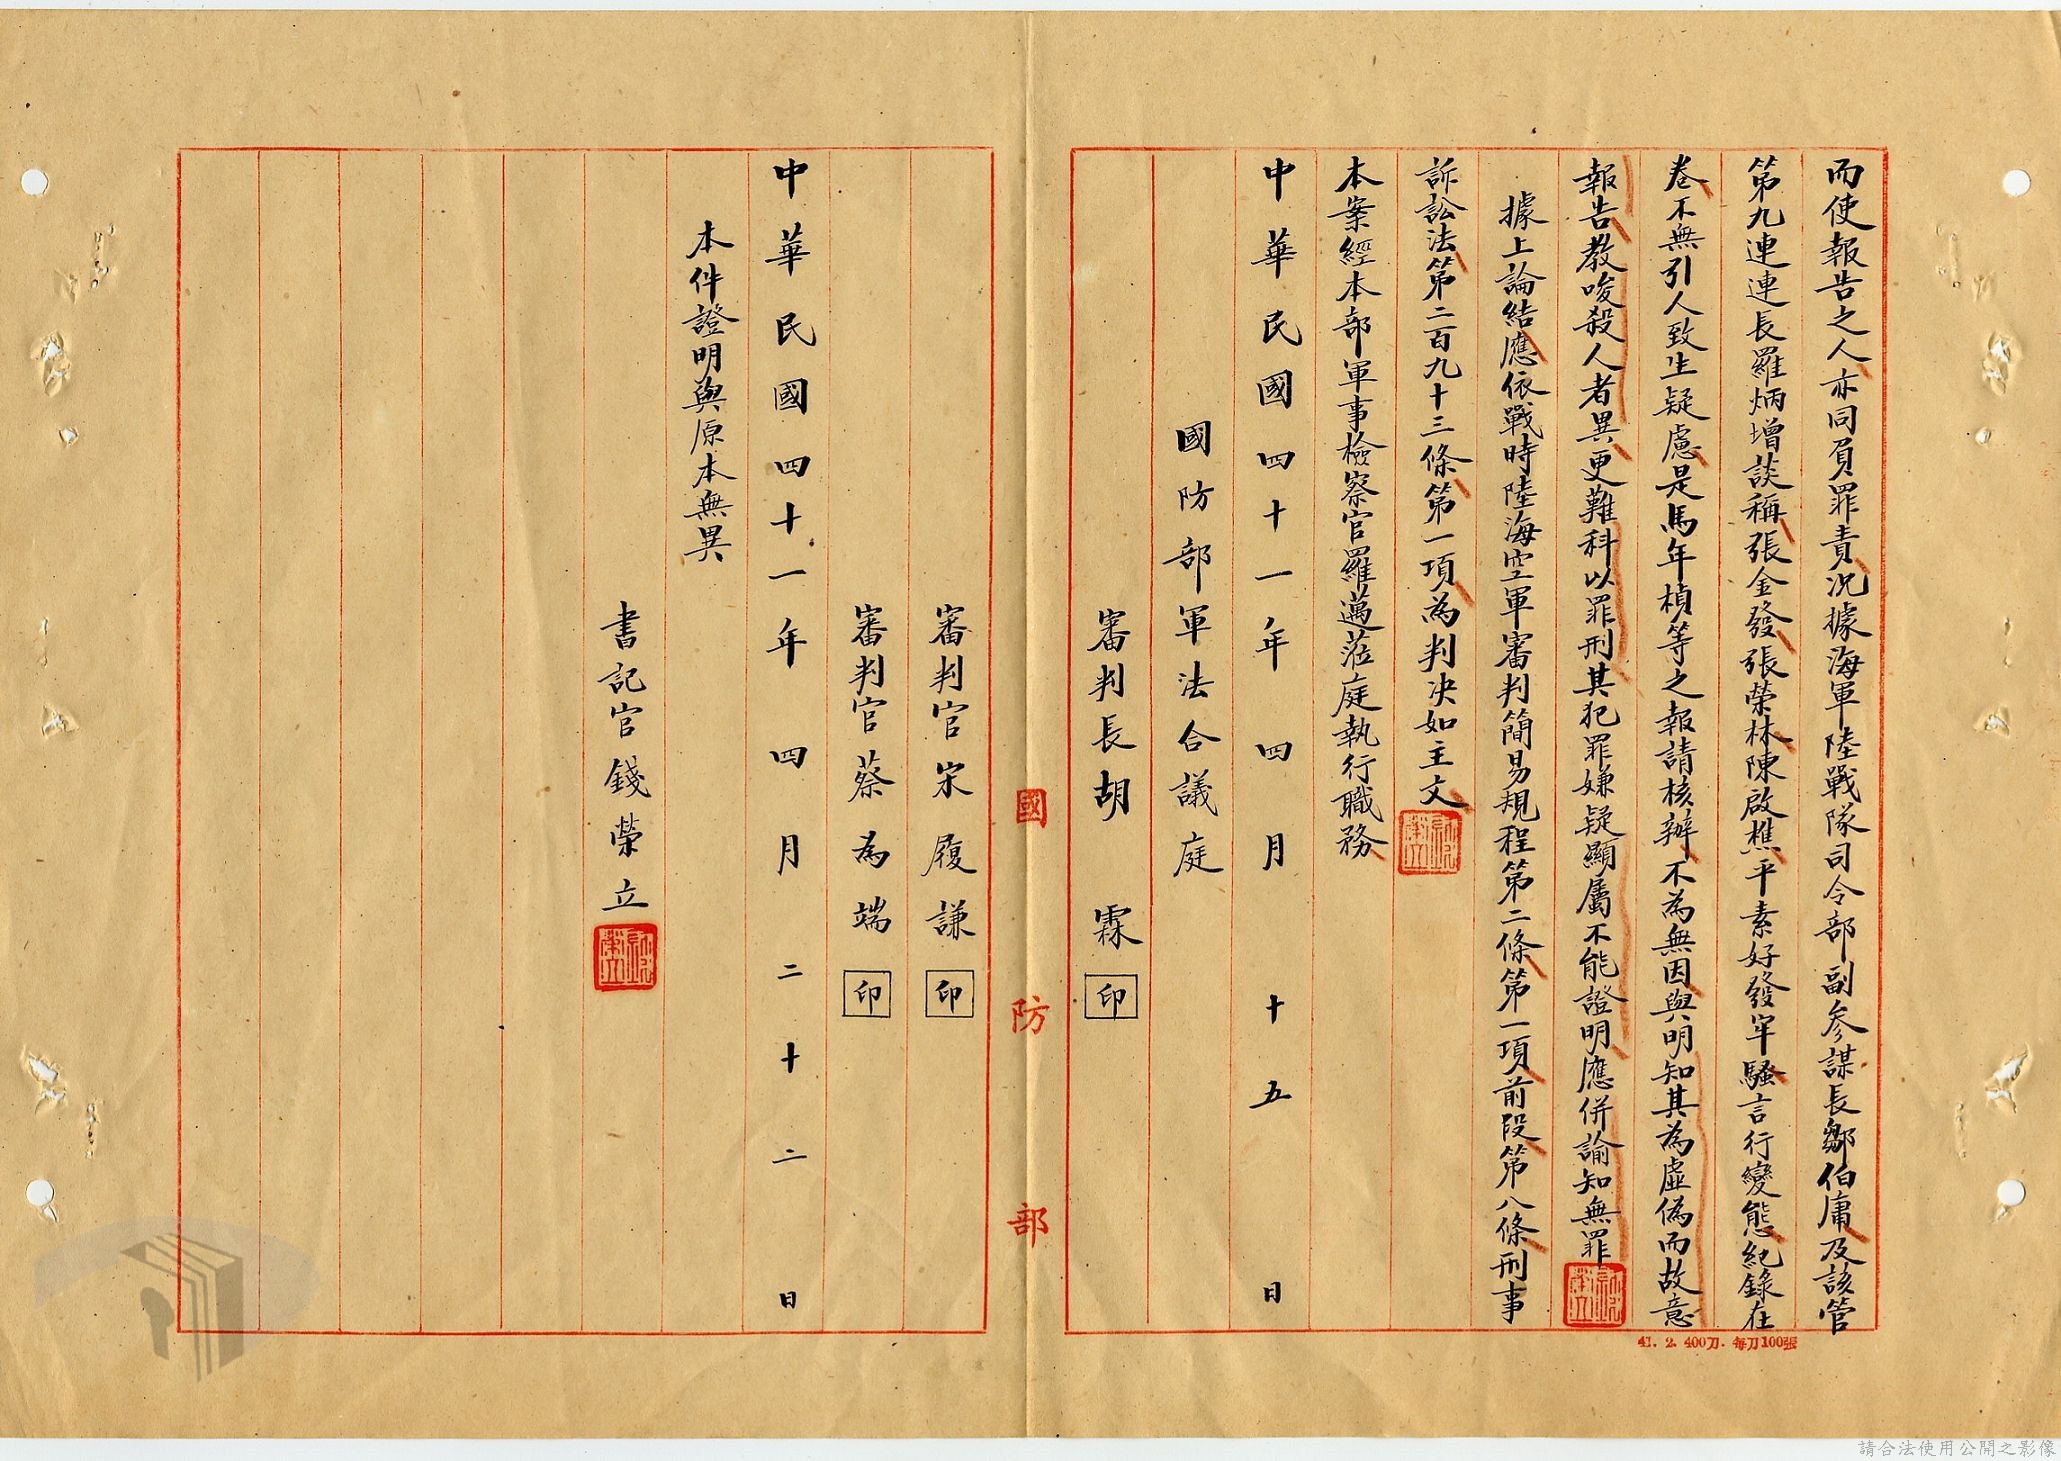 而使報告之人亦同負罪責況據海軍陸戰隊司令部副參謀長鄒伯庸及該管
第九連連長羅炳增談稱張金發張榮林陳啟樵平素好發牢騷言行變態紀錄在
卷不無引人致生疑慮是馬年楨等之報請核辦不為無因與明知其為虛偽而故意
報告教唆殺人者異更難科以罪刑其犯罪嫌疑顯屬不能證明應併諭知無罪
據上論結應依戰時陸海空軍審判簡易規程第二條第一項前段第八條刑事
訴訟法第二百九十三條第一項為判決如主文
本案經本部軍事檢察官羅邁蒞庭執行職務
中華民國四十一年四月十五日
國防部軍法合議庭
審判長胡霖印
國防部
審判官宋履謙印
審判官蔡為端印
中華民國四十一年四月二十二日
本件證明與原本無異
書記官錢榮立
41. 2. 400刀. 每刀100張
請合法使用公開之影像